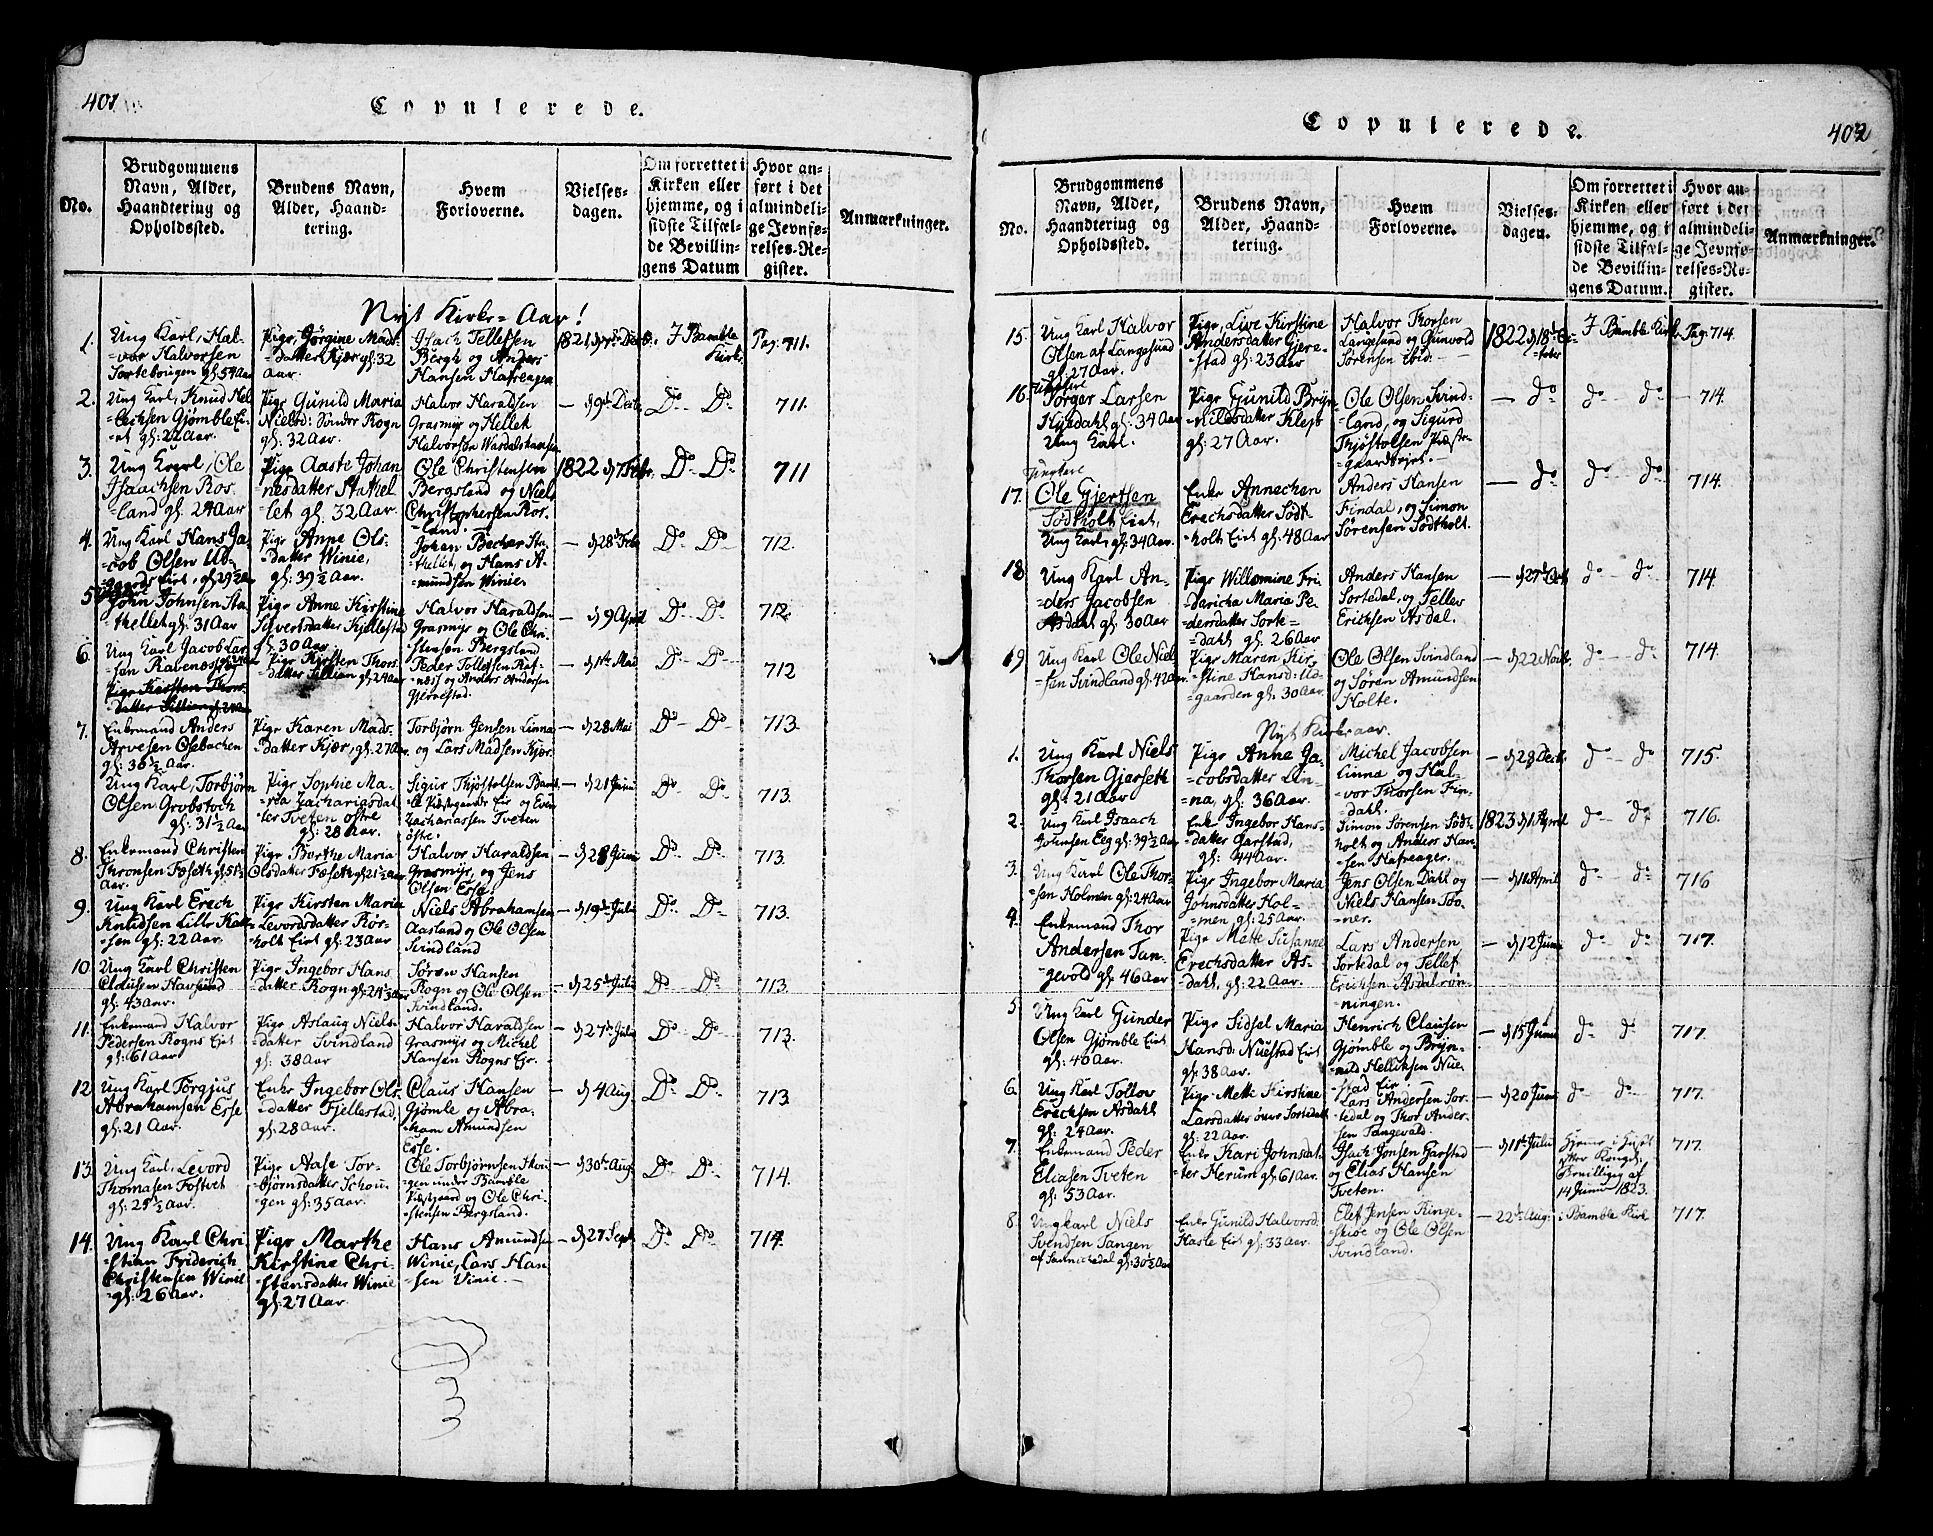 401
Copulerede.
No.
Brudgommens
Navn, Alder,
Haandtering og
Opholdssted.
Brudens Navn,
Alder, Haand-
tering.
Hvem
Forloverne.
Vielses-
dagen.
Om forrettet i
Kirken eller
hjemme, og i
sidste Tilfæl-
de Bevillin-
gens Datum
Hvor an-
ført i det
almindeli-
ge Jevnfø-
relses-Re-
gister.
Anmærkninger.
Nyt Kirke-Aar!
1.
Ung Karl, Hal-
-vor Halvorsen
Sortebougen gl: 54 Aar
Pige, Jørgine Mads-
datter Kjær gl: 32
Aar.
Isach Tellefsen
Bergh og Anders
Hansen Hafreager
1821
I Bamble
Kirke
Pag: 711.
2.
Ung Karl, Knud Hel-
-lechsen Gjømble Ei-
-et gl: 22 Aar.
Pige Gunild Maria
Nielsd: Sønder Rogn
gl: 32 Aar.
Halvor Haraldsen
Grasmyr og Hellek
Halvorsen
— d 9de Decbr
Do — Do
711.
3.
Ung Karl, Ole
Isaachsen Ros-
land gl: 24 Aar
Pige Aaste Johan
nesdatter Stathel
let gl: 32 Aar.
Ole Christensen
Bergsland og Niels
Christophersen Ros-
-land.
1822 d 7 Febr.
Do Do
711
4.
Ung Karl Hans Ja-
cob Olsen Ub-
gaards Eiet, gl: 29½ Aar
Pige Anne Ols-
datter Winie,
gl: 39½ Aar.
Johan Becher Sta-
thellet, og Hans A-
mundsen Winie.
— d 28 Feb
Do Do
712.
5.
John Johnsen Sta-
thellet gl: 31 Aar
Pige Anne Kirstine
Sivertsdatter Kjellestad
gl. 30 Aar
Halvor Haraldsen
Grasmyr og Ole Chri-
stensen Bergsland
— d 9 April
Do — Do
712.
6.
Ung Karl Jacob Lar-
sen Ravenes
Pige Kirsten Thors
datter Sillian gl. 24 Aar
Pige Kirsten Thors-
datter Sillian gl. 24 Aar
Peder Tollefsen Raf-
nes og Anders Andersen
Gjerrestad
— d 1ste Mai
Do — Do
712
7.
Enkemand Anders
Arvesen Osebachen
gl: 36½ Aar.
Pige Karen Mads-
datter Kjær, gl: 27 Aar
Torbjørn Jensen Linna
og Lars Madsen Kjær.
— d 28 Mai
Do — Do
713.
Ung Karl, Torbjørn
Olsen Grobstoch
gl: 31½ Aar
Pige Sophie Ma-
-rea Zachariasdat
ter Tveten østre
gl: 28 Aar.
Sigur Thjostolsen Bamb-
le Præstgaards Eie og Even
Zachariassen Tveten
østre.
— d 21 Juni
Do — Do
713.
8.
Enkemand Christen
Thronsen Foseth gl: 51½
Aar.
Pige Barthe Maria
Olsdatter Foseth gl: 21½ Aar
Halvor Haraldsen
Grasmyr, og Jens
Olsen Esse
— d 28 Juni
Do — Do
713.
9.
Ung Karl Erech
Knudsen Lille Kat-
-sen gl: 22 Aar.
Pige Kirsten Maria
Levordsdatter Rør-
holt Eiet gl: 23 Aar
Niels Abrahamsen
Aasland og Ole Olsen
Svindland
— d 19de Julii
Do — Do
713.
10.
Ung Karl Christen
Clausen Havsund
gl: 43 Aar.
Pige Ingebor Hans
datter Rogn gl: 24½ Aar
Søren Hansen
Rogn og Ole Olsen
Svindland.
— d 25de Julii
Do — Do
713.
11.
Enkemand Halvor
Pedersen Rogns Eiet
gl: 61 Aar
Pige Aslaug Niels-
datter Svindland
gl: 38 Aar
Halvor Haraldsen
Grasmyr og Michel
Hansen Rogns Eje.
— d 27de Julii
Do — Do
713.
12.
Ung Karl Torgjus
Abrahamsen Esse
gl: 21 Aar.
Enke Ingebor Ols
-datter Fjellestad.
gl: 28 Aar.
Claus Hansen
Gjømle og Abra-
ham Amundsen
Esse.
— d 4 Aug.
Do Do
713
13.
Ung Karl, Levord
Thomasen Fostvet
gl: 25½ Aar.
Pige Aase Tor-
bjørnsdatter Schou-
gen gl: 35 Aar.
Ole Torbjørnsen Skou
gen under Bamble
Præstgaard og Ole Chri-
-stensen Bergsland.
— d 30te Aug
Do Do
714.
14.
Ung Karl Chri-
stian Friderich
Christensen Winie
gl: 26 Aar.
Pige Marthe
Kirstine Chri-
-stensdatter Winie
gl: 27 Aar.
Hans Amundsen
Winie, Lars Han
sen Vinie. —
— d 27 Sept.
Do Do
714.
402
Copulerede.
No.
Brudgommens
Navn, Alder,
Haandtering og
Opholdssted.
Brudens Navn,
Alder, Haand-
tering.
Hvem
Forloverne.
Vielses-
dagen.
Om forrettet i
Kirken eller
hjemme, og i
sidste Tilfæl-
de Bevillin-
gens Datum.
Hvor an-
ført i det
almindeli-
ge Jevnfø-
relses-Re-
gister.
Anmærkninger.
15.
Ung Karl Halvor
Olsen af Langesund
gl: 27 Aar.
Pige, Live Kirstine
Andersdatter Gjere-
-stad gl: 23 Aar
Halvor Thorsen
Langesund og Gunvold
Sørensen ibid. —
1822 d 18de Oc-
tober
I Bamble Kirke
Pag: 714.
16.
Torger Larsen
Hydahl gl: 34 Aar
Ung Karl.
Pige Gunild Bryn-
nildsdatter Klep
gl: 27 Aar.
Ole Olsen Svind-
land, og Sigurd
Thjøstolsen Præste-
gaardsejet. —
— do
do — do
— 714.
17.
Ole Gjertsen
Sødtholt Eiet,
Ung Karl, gl: 34 Aar.
Enke Annechen
Erechsdatter Sødt-
holt Eiet gl: 48 Aar
Anders Hansen
Findal, og Simon
Sørensen Sødtholt.
— do
do do
714.
18
Ung Karl An-
ders Jacobsen
Asdahl gl: 30 Aar
Pige Willomine Fri
daricha Maria Pe
dersdatter Sorte-
dahl gl. 26 Aar
Anders Hansen
Sortedal, og Tellev
Erichsen Asdal.
— d 27de Oct
do — do
714
19
Ung Karl Ole Niel-
sen Svindland gl: 42 Aar
Pige Maren Kir-
stine Hansd: Ud-
gaarden gl: 30 Aar.
Ole Olsen Svindland
og Søren Amundsen
Holte.
— d 22 Novbr.
do — do
714.
Nyt Kirkeaar.
1.
Ung Karl Niels
Thorsen Gjerseth
gl: 21 Aar
Pige Anne Ja-
cobsdatter Lin-
na, gl: 36 Aar.
Michel Jacobsen
Linna og Hal-
vor Thorsen Fin-
dahl.
— d 28 Decbr
do — do
715.
2.
Ung Karl Isaach
Johnsen Eeg gl: 39½ Aar
Enke Ingebor Hans-
datter Garstad,
gl: 44 Aar.
Simon Sørensen Sødt
holt og Anders Han
sen Hafreager.
1823 d 1 April
do — do
716.
3.
Ung Karl Ole Thor-
-sen Holmen gl: 24 Aar
Pige Ingebor Maria
Johnsdatter Hol-
men, gl: 25 Aar.
Jens Olsen Dahl og
Niels Hansen Too-
ner.
— d 11 April
do — do
716
4.
Enkemand Thor
Andersen Tan-
gevold gl. 46 Aar
Pige Mette Susanne
Erechsdatter As-
dahl, gl: 22 Aar.
Lars Andersen
Sortedal og Tellef
Erichsen Asdalrøn-
ningen.
— d 12 Juni
do — do
717.
5
Ung Karl Gunder
Olsen Gjømble Eiet
gl: 40 Aar.
Pige Sidsel Maria
Hansd: Nuestad Eiet
gl: 38 Aar.
Henrich Clausen
Gjømble og Bryn-
-ild Hellichsen Nue
stad Eie.
— d 15 Juni
do — do
717.
6.
Ung Karl Tollov
Erechsen Asdahl
gl: 24 Aar.
Pige Mette Kirstine
Larsdatter øvre Sortedal
gl: 22 Aar.
Lars Andersen Sor-
tedal og Thor Ander-
sen Tangevald.
— d 20 Juni
do — do
717.
7.
Enkemand Peder
Eliasen Tveten
gl: 53 Aar.
Enke Kari Johnsdat
ter Herum, gl: 61 Aar.
Isach Jonsen Garstad
og Elias Hansen
Tveten.
— d 11te Julii
Hjemme i Huset
efter Kongel:
Bevilling af
14 Junii 1823.
717.
8.
Ungkarl Niels
Svendsen Tangen
af Sannichedal gl: 30½ Aar
Enke Gunild Halvorsd.
Hasle Eiet gl: 33 Aar.
Elef Jensen Ringe-
skoe og Ole Olsen
Svindland.
— 22de Aug:
i Bamble Kirke
717.